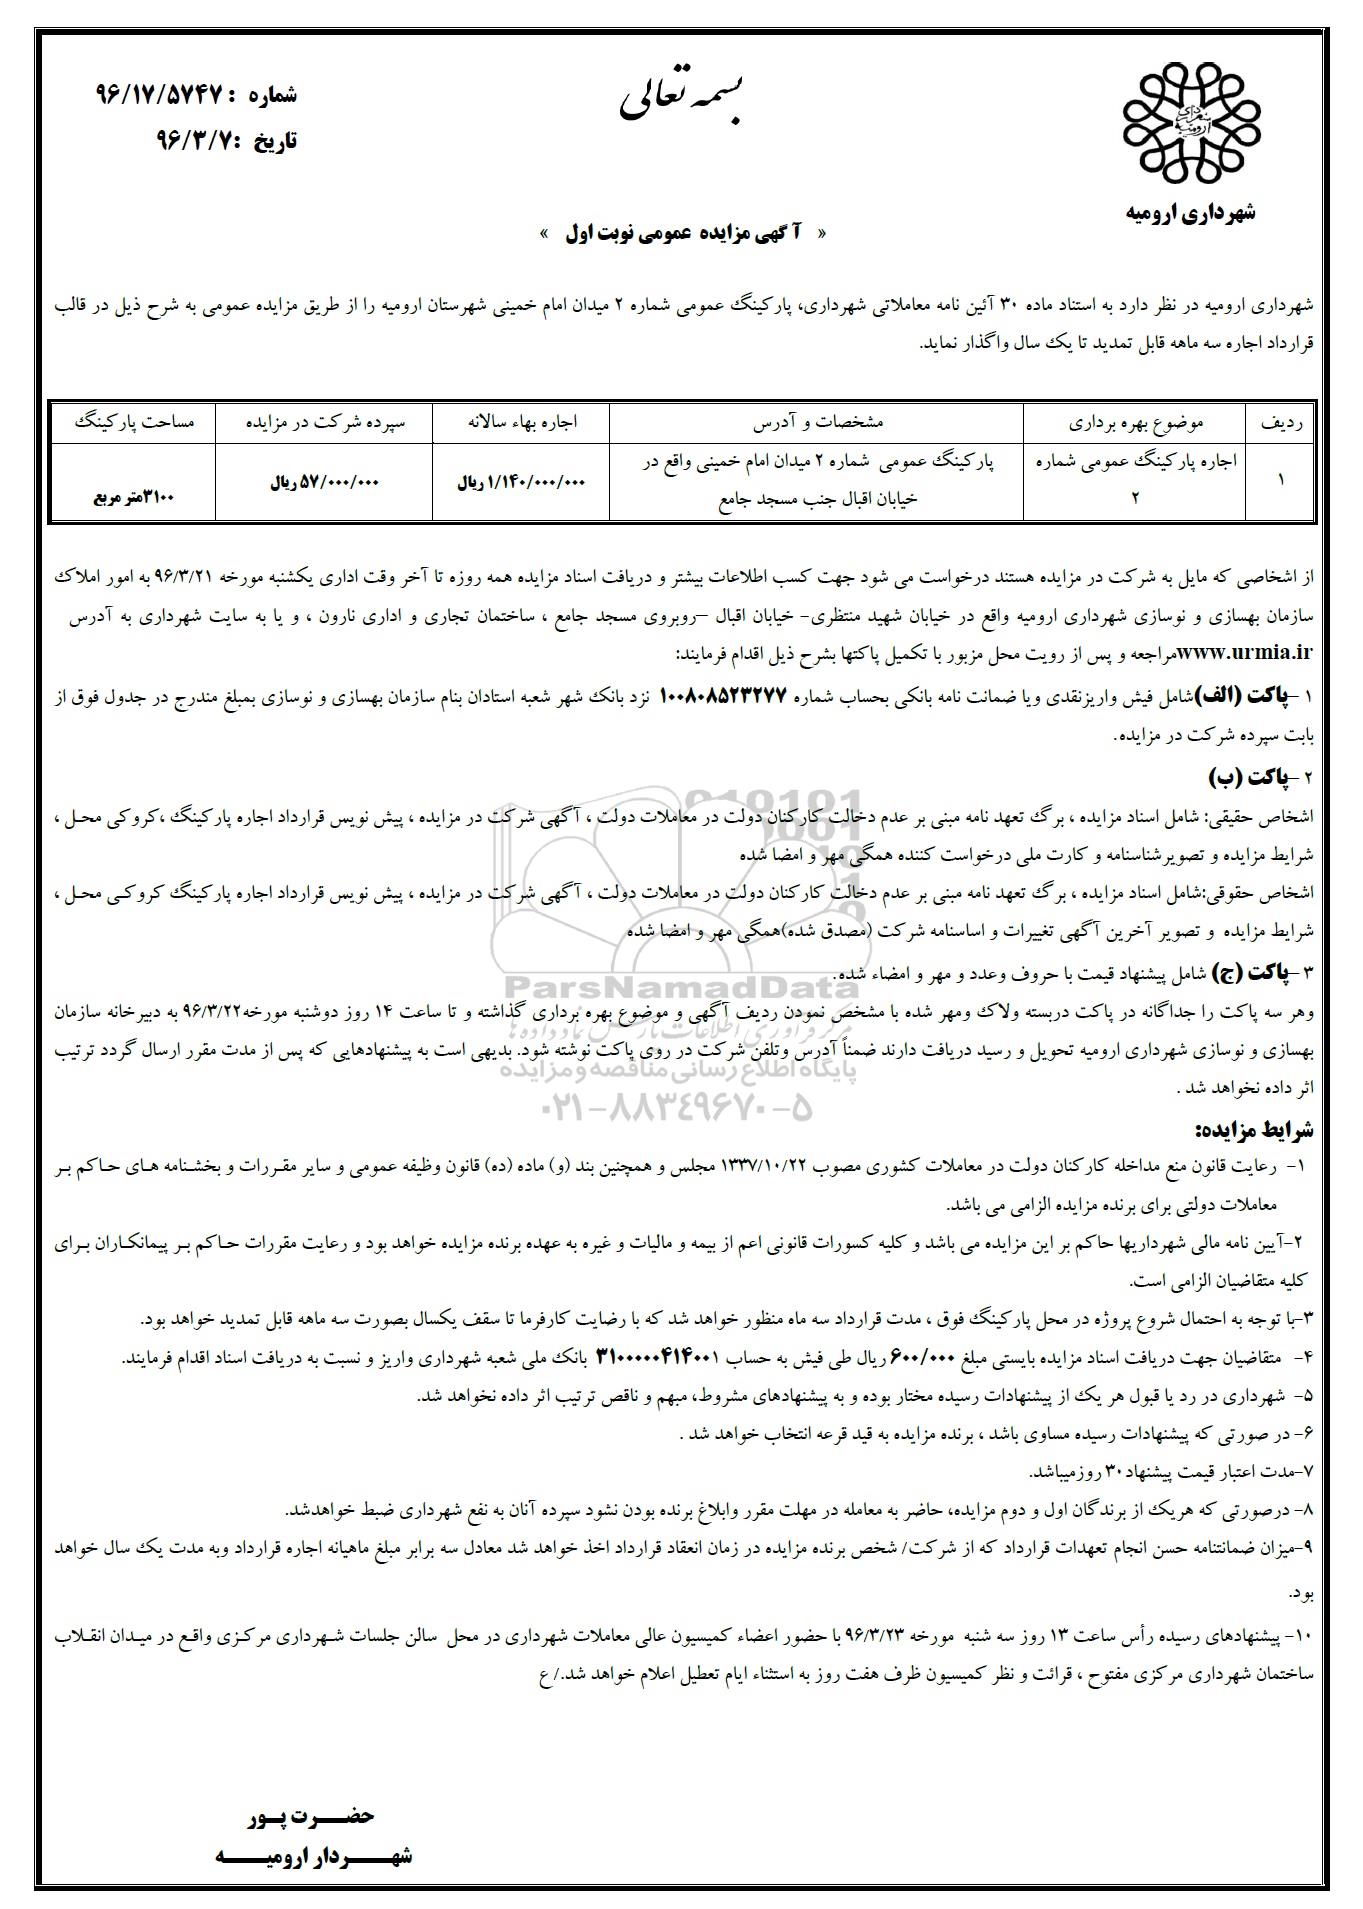 بسمه تعالی
شماره : ۹۶/۱۷/۵۷۴۷
تاریخ :۹۶/۳/۷
شهرداری ارومیه
« آگهی مزایده عمومی نوبت اول »
شهرداری ارومیه در نظر دارد به استناد ماده ۳۰ آئین نامه معاملاتی شهرداری، پارکینگ عمومی شماره ۲ میدان امام خمینی شهرستان ارومیه را از طریق مزایده عمومی به شرح ذیل در قالب
قرارداد اجاره سه ماهه قابل تمدید تا یک سال واگذار نماید.
ردیف موضوع بهره برداری مشخصات و آدرس اجاره بهاء سالانه سپرده شرکت در مزایده مساحت پارکینگ
۱ اجاره پارکینگ عمومی شماره ۲ پارکینگ عمومی شماره ۲ میدان امام خمینی واقع در خیابان اقبال جنب مسجد جامع ۱/۱۴۰/۰۰۰/۰۰۰ ریال ۵۷/۰۰۰/۰۰۰ ریال ۳۱۰۰متر مربع
از اشخاصی که مایل به شرکت در مزایده هستند درخواست می شود جهت کسب اطلاعات بیشتر و دریافت اسناد مزایده همه روزه تا آخر وقت اداری یکشنبه مورخه ۹۶/۳/۲۱ به امور املاک
سازمان بهسازی و نوسازی شهرداری ارومیه واقع در خیابان شهید منتظری- خیابان اقبال –روبروی مسجد جامع ، ساختمان تجاری و اداری نارون ، و یا به سایت شهرداری به آدرس
www.urmia.irمراجعه و پس از رویت محل مزبور با تکمیل پاکتها بشرح ذیل اقدام فرمایند:
۱ –پاکت (الف)شامل فیش واریزنقدی ویا ضمانت نامه بانکی بحساب شماره ۱۰۰۸۰۸۵۲۳۲۷۷ نزد بانک شهر شعبه استادان بنام سازمان بهسازی و نوسازی بمبلغ مندرج در جدول فوق از
بابت سپرده شرکت در مزایده.
۲ –پاکت (ب)
اشخاص حقیقی: شامل اسناد مزایده ، برگ تعهد نامه مبنی بر عدم دخالت کارکنان دولت در معاملات دولت ، آگهی شرکت در مزایده ، پیش نویس قرارداد اجاره پارکینگ ،کروکی محل ،
شرایط مزایده و تصویرشناسنامه و کارت ملی درخواست کننده همگی مهر و امضا شده
اشخاص حقوقی:شامل اسناد مزایده ، برگ تعهد نامه مبنی بر عدم دخالت کارکنان دولت در معاملات دولت ، آگهی شرکت در مزایده ، پیش نویس قرارداد اجاره پارکینگ کروکی محل ،
شرایط مزایده و تصویر آخرین آگهی تغییرات و اساسنامه شرکت (مصدق شده)همگی مهر و امضا شده
۳ –پاکت (ج) شامل پیشنهاد قیمت با حروف وعدد و مهر و امضاء شده.
ParsNamadData
وهر سه پاکت را جداگانه در پاکت دربسته ولاک ومهر شده با مشخص نمودن ردیف آگهی و موضوع بهره برداری گذاشته و تا ساعت ۱۴ روز دوشنبه مورخه۹۶/۳/۲۲ به دبیرخانه سازمان
مرکز فرآوری اطلاعات پارس نماد داده ها
بهسازی و نوسازی شهرداری ارومیه تحویل و رسید دریافت دارند ضمناً آدرس وتلفن شرکت در روی پاکت نوشته شود. بدیهی است به پیشنهادهایی که پس از مدت مقرر ارسال گردد ترتیب
پایگاه اطلاع رسانی مناقصه و مزایده
اثر داده نخواهد شد .
۰۲۱-۸۸۳۴۹۶۷۰-۵
شرایط مزایده:
۱- رعایت قانون منع مداخله کارکنان دولت در معاملات کشوری مصوب ۱۳۳۷/۱۰/۲۲ مجلس و همچنین بند (و) ماده (ده) قانون وظیفه عمومی و سایر مقررات و بخشنامه های حاکم بر
معاملات دولتی برای برنده مزایده الزامی می باشد.
۲-آیین نامه مالی شهرداریها حاکم بر این مزایده می باشد و کلیه کسورات قانونی اعم از بیمه و مالیات و غیره به عهده برنده مزایده خواهد بود و رعایت مقررات حاکم بر پیمانکاران برای
کلیه متقاضیان الزامی است.
۳-با توجه به احتمال شروع پروژه در محل پارکینگ فوق ، مدت قرارداد سه ماه منظور خواهد شد که با رضایت کارفرما تا سقف یکسال بصورت سه ماهه قابل تمدید خواهد بود.
۴- متقاضیان جهت دریافت اسناد مزایده بایستی مبلغ ۶۰۰/۰۰۰ ریال طی فیش به حساب ۳۱۰۰۰۰۰۴۱۴۰۰۱ بانک ملی شعبه شهرداری واریز و نسبت به دریافت اسناد اقدام فرمایند.
۵- شهرداری در رد یا قبول هر یک از پیشنهادات رسیده مختار بوده و به پیشنهادهای مشروط، مبهم و ناقص ترتیب اثر داده نخواهد شد.
۶- در صورتی که پیشنهادات رسیده مساوی باشد ، برنده مزایده به قید قرعه انتخاب خواهد شد .
۷-مدت اعتبار قیمت پیشنهاد۳۰ روزمیباشد.
۸- درصورتی که هریک از برندگان اول و دوم مزایده، حاضر به معامله در مهلت مقرر وابلاغ برنده بودن نشود سپرده آنان به نفع شهرداری ضبط خواهدشد.
۹-میزان ضمانتنامه حسن انجام تعهدات قرارداد که از شرکت/ شخص برنده مزایده در زمان انعقاد قرارداد اخذ خواهد شد معادل سه برابر مبلغ ماهیانه اجاره قرارداد وبه مدت یک سال خواهد
بود.
۱۰- پیشنهادهای رسیده رأس ساعت ۱۳ روز سه شنبه مورخه ۹۶/۳/۲۳ با حضور اعضاء کمیسیون عالی معاملات شهرداری در محل سالن جلسات شهرداری مرکزی واقع در میدان انقلاب
ساختمان شهرداری مرکزی مفتوح ، قرائت و نظر کمیسیون ظرف هفت روز به استثناء ایام تعطیل اعلام خواهد شد./ع
حضرت پور
شهردار ارومیه